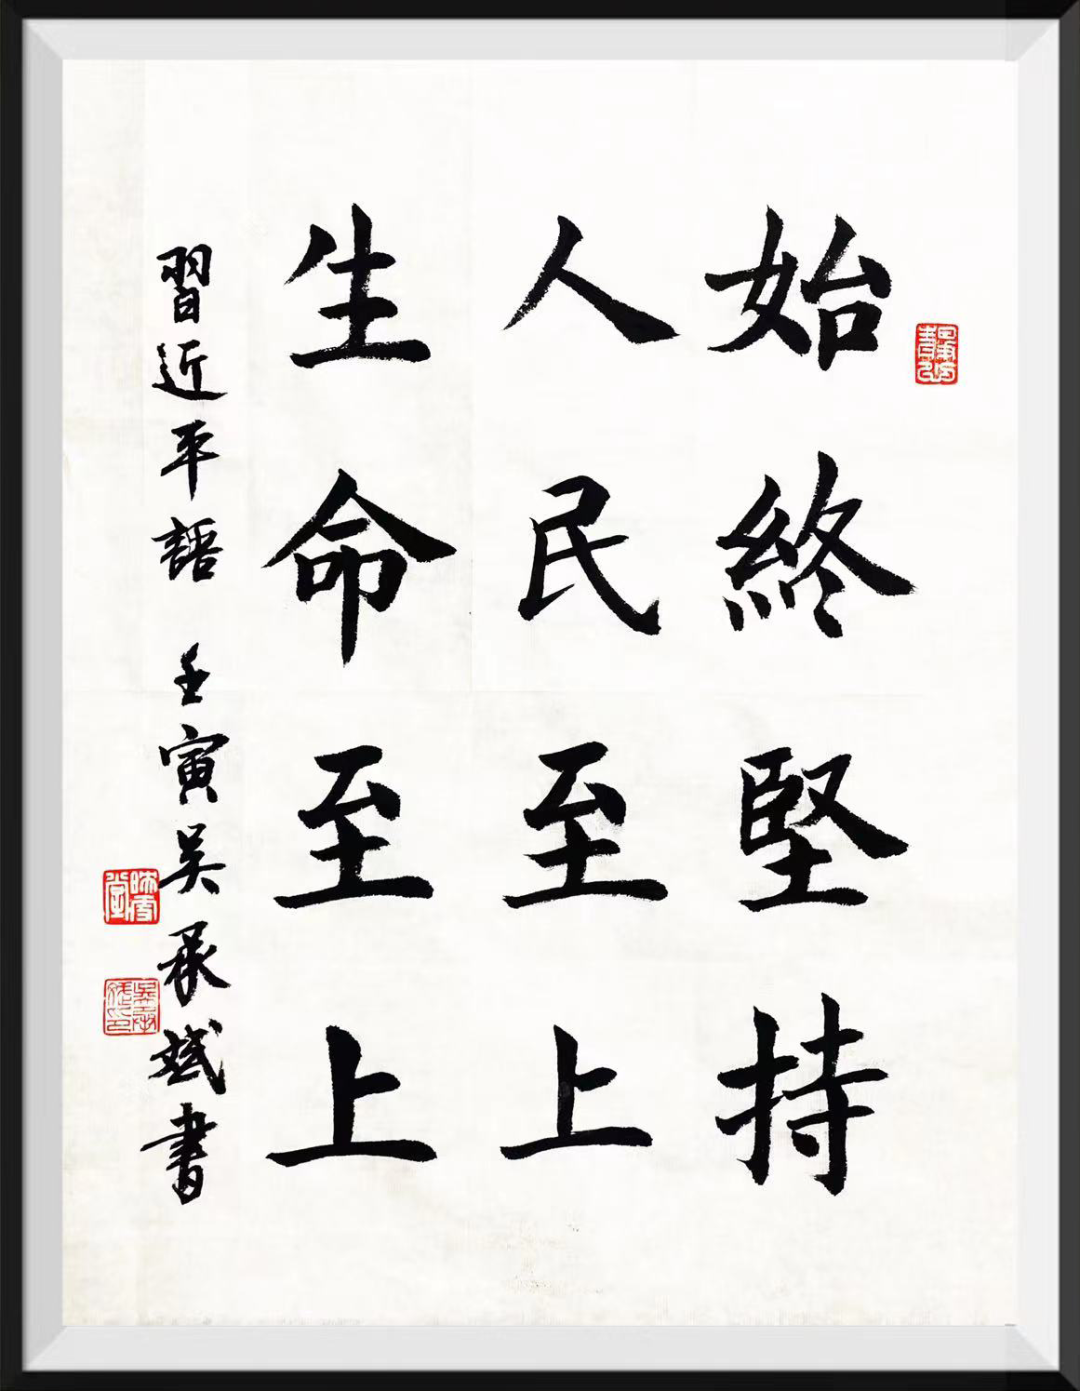 始終堅持
人民至上
生命至上
習近平語 壬寅吴承斌書